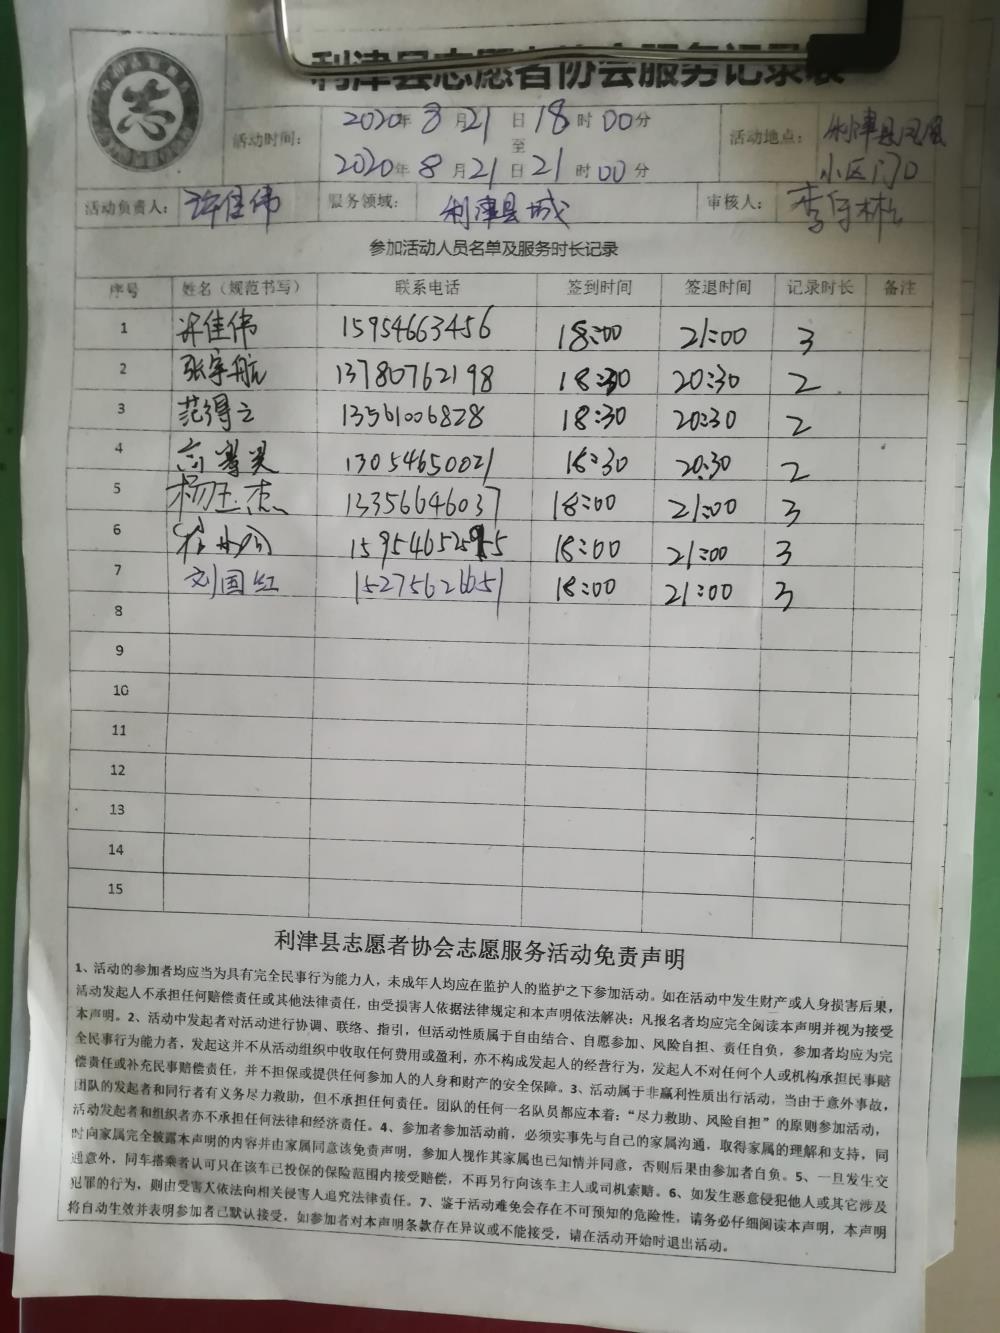 利津县志愿者协会服务记录表
活动时间： 2020年 8月21日 18时00分
至
2020年 8月21日 21时00分
活动地点： 利津县凤凰
小区门口
活动负责人： 许佳伟 服务领域： 利津县城 审核人：
参加活动人员名单及服务时长记录
序号 姓名（规范书写） 联系电话 签到时间 签退时间 记录时长 备注
1 许佳伟 15954663456 18:00 21:00 3
2 张宇航 13780762198 18:30 20:30 2
3 范得之 13561006828 18:30 20:30 2
4 13054650021 18:30 20:30 2
5 杨玉杰 13356646037 18:00 21:00 3
6 18:00 21:00 3
7 刘国红 18:00 21:00 3
8
9
10
11
12
13
14
15
利津县志愿者协会志愿服务活动免责声明
1、活动的参加者均应当为具有完全民事行为能力人，未成年人均应在监护人的监护之下参加活动。如在活动中发生财产或人身损害后果，
活动发起人不承担任何赔偿责任或其他法律责任，由受损害人依据法律规定和本声明依法解决；凡报名者均应完全阅读本声明并视为接受
本声明。2、活动中发起者对活动进行协调、联络、指引，但活动性质属于自由结合、自愿参加、风险自担、责任自负，参加者均应为完
全民事行为能力者，发起这并不从活动组织中收取任何费用或盈利，亦不构成发起人的经营行为，发起人不对任何个人或机构承担民事赔
偿责任或补充民事赔偿责任，并不担保或提供任何参加人的人身和财产的安全保障。3、活动属于非赢利性质出行活动，当由于意外事故，
团队的发起者和同行者有义务尽力救助，但不承担任何责任。团队的任何一名队员都应本着：“尽力救助、风险自担”的原则参加活动，
活动发起者和组织者亦不承担任何法律和经济责任。4、参加者参加活动前，必须实事先与自己的家属沟通，取得家属的理解和支持，同
时向家属完全披露本声明的内容并由家属同意该免责声明，参加人视作其家属也已知情并同意，否则后果由参加者自负。5、一旦发生交
通意外，同车搭乘者认可只在该车已投保的保险范围内接受赔偿，不再另行向该车主人或司机索赔。6、如发生恶意侵犯他人或其它涉及
犯罪的行为，则由受害人依法向相关侵害人追究法律责任。7、鉴于活动难免会存在不可预知的危险性，请务必仔细阅读本声明，本声明
将自动生效并表明参加者已默认接受，如参加者对本声明条款存在异议或不能接受，请在活动开始时退出活动。